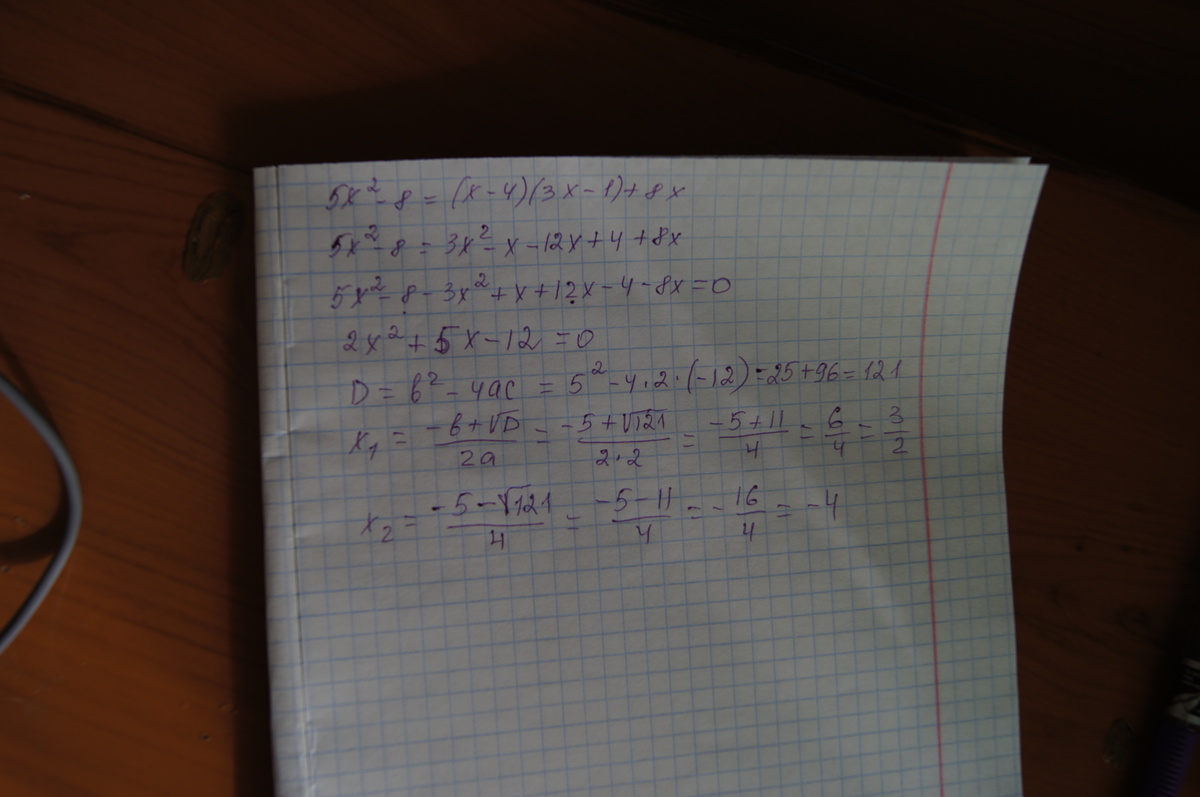 5x² - 8 = (x - 4)(3x - 1) + 8x
5x² - 8 = 3x² - x - 12x + 4 + 8x
5x² - 8 - 3x² + x + 12x - 4 - 8x = 0
2x² + 5x - 12 = 0
D = b² - 4ac = 5² - 4·2·(-12) = 25 + 96 = 121
x₁ = (-b + √D)/(2a) = (-5 + √121)/(2·2) = (-5 + 11)/4 = 6/4 = 3/2
x₂ = (-5 - √121)/4 = (-5 - 11)/4 = -16/4 = -4